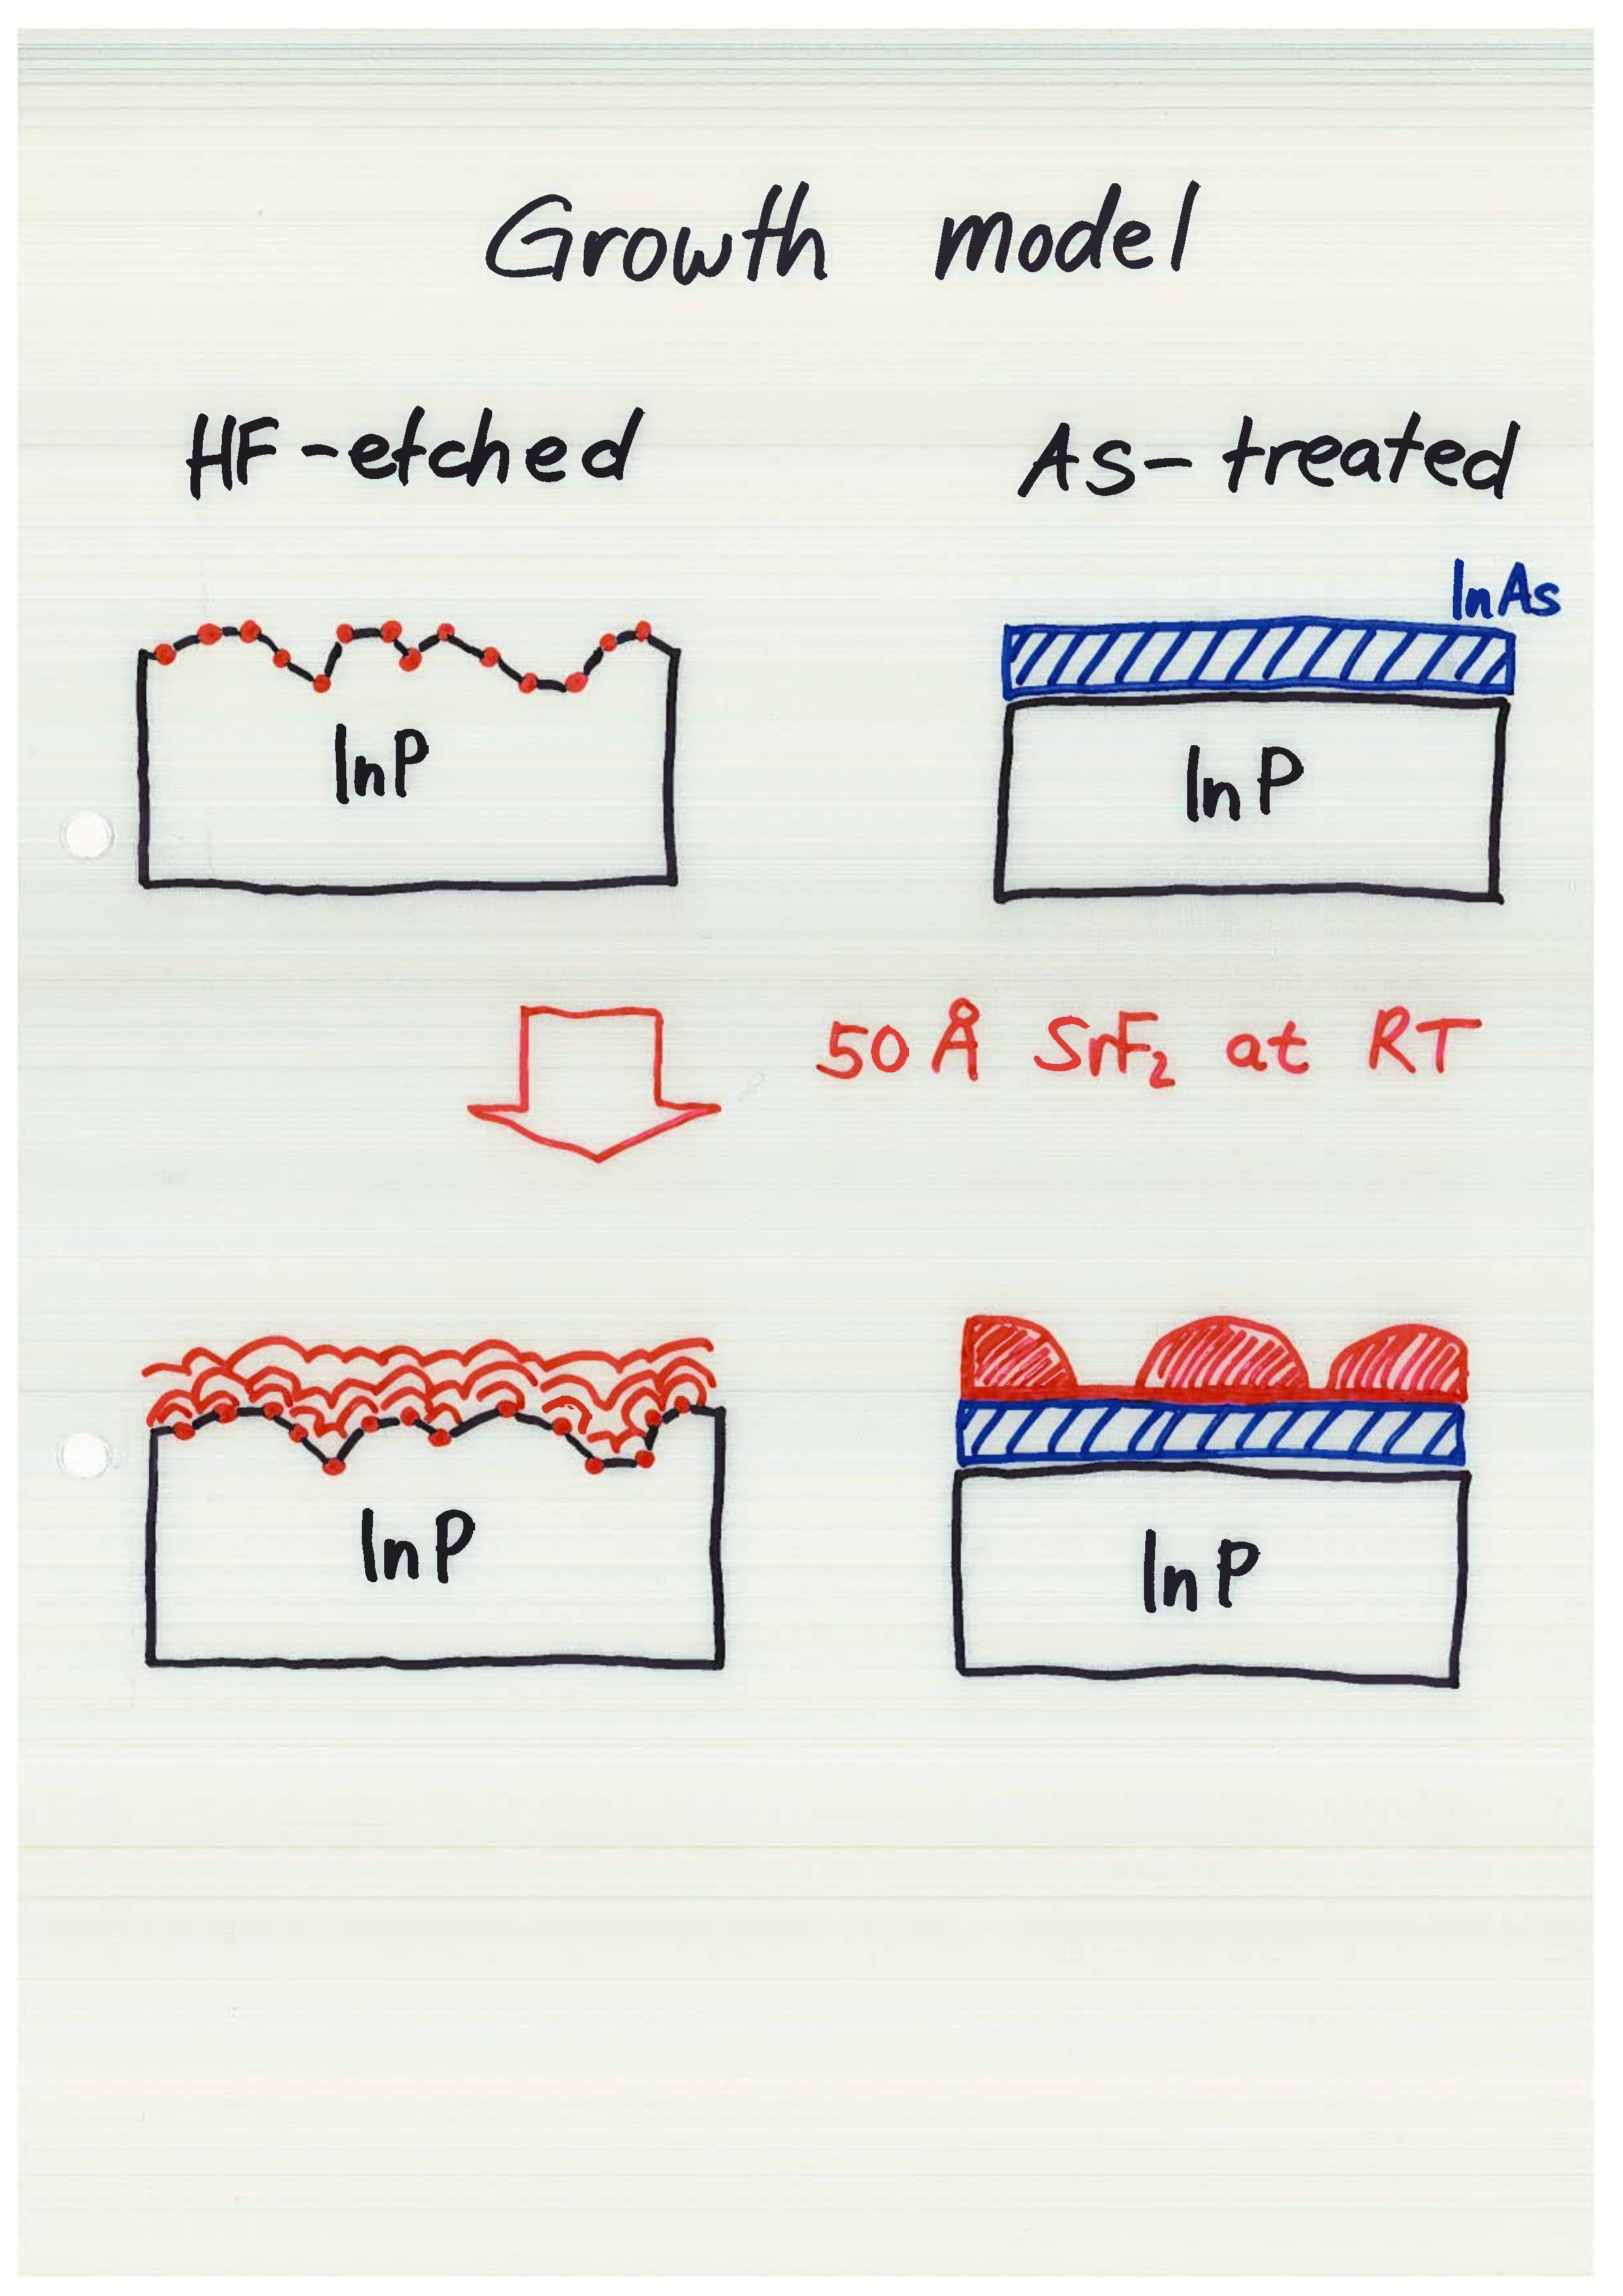 Growth model
HF-etched
As-treated
InAs
InP
InP
50 Å SrF₂ at RT
InP
InP